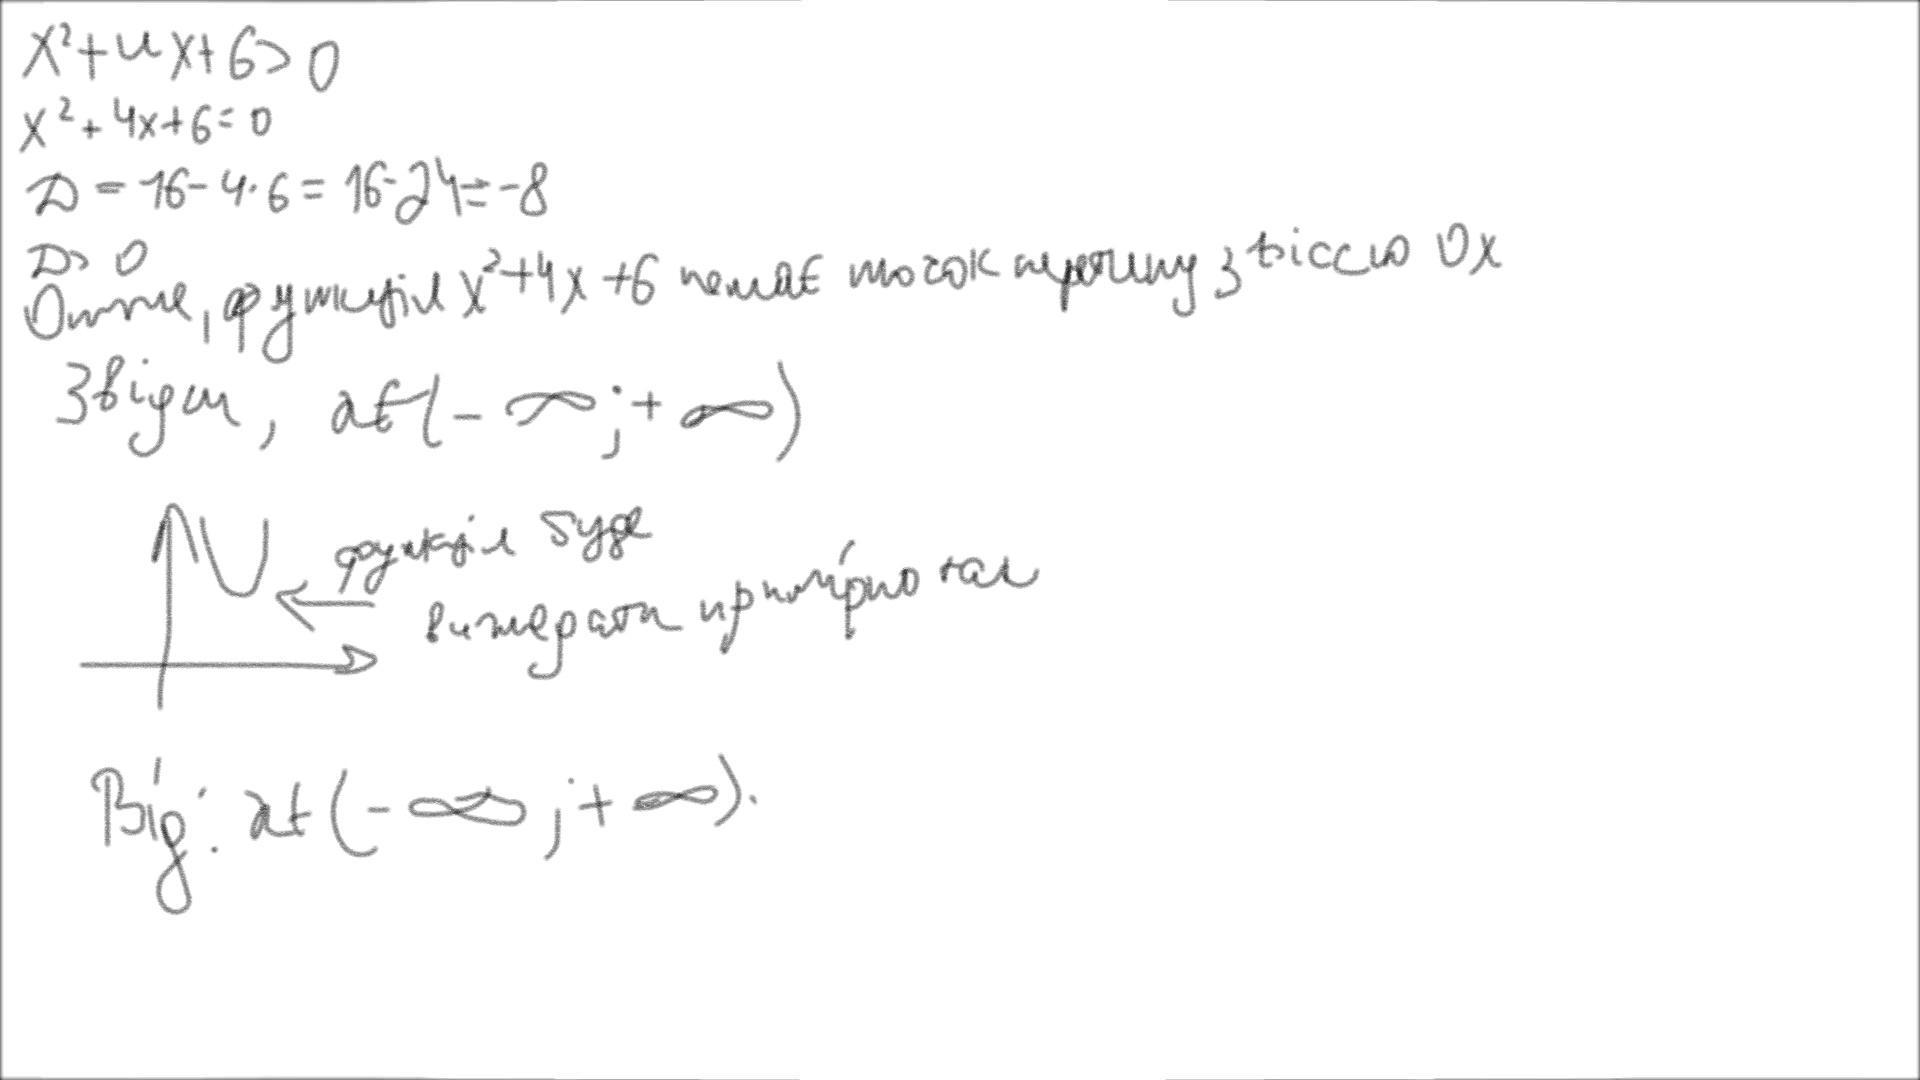 x²+4x+6>0
x²+4x+6=0
D = 16-4·6 = 16-24 = -8
D > 0
Отже, функція x²+4x+6 немає точок перетину з віссю Ox
Звідси, x∈(-∞;+∞)
функція буде
виглядати приблизно так
Від: x∈(-∞;+∞).